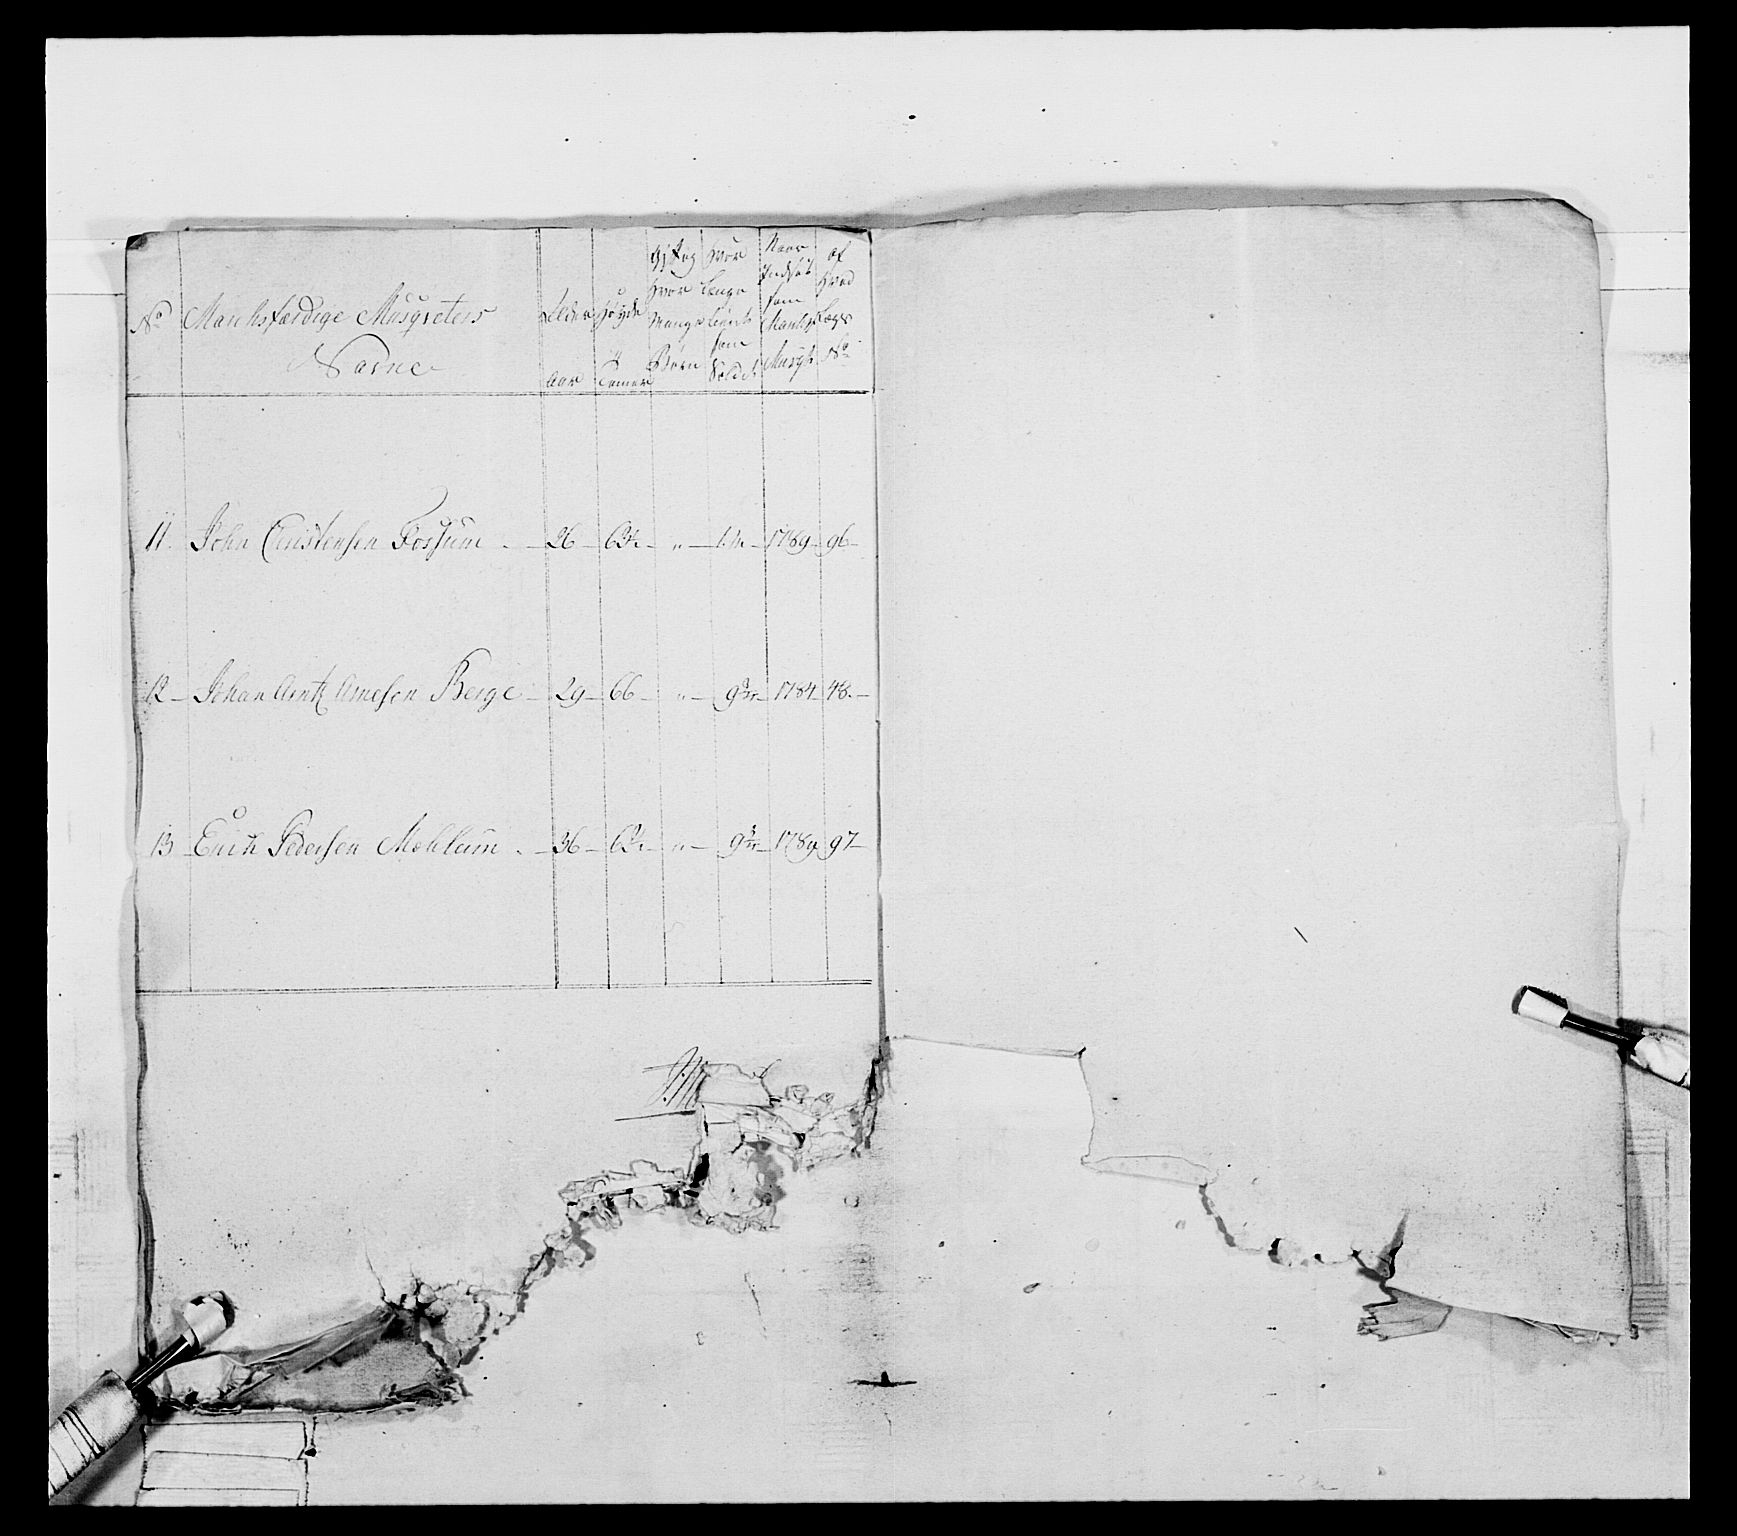 No Marchsfærdige Musqveters Navne Alder Aar Høyde Tomer Gift og Hvor Mange Børn Hvor Længe tient som Soldat Naar Indsat som Musqt. af Hvad Lægs No
11. John Christensen Fossum . - 26 - 63¾ - " - 1787 - 1789 - 96 -
12 - Johan Arntz Arnesen Berge - 29 - 66 - " - 9 - 1784 - 48. -
13 - Erich Pedersen Mæhlum . - 36 - 63 - " - 9 - 1789 - 97 -